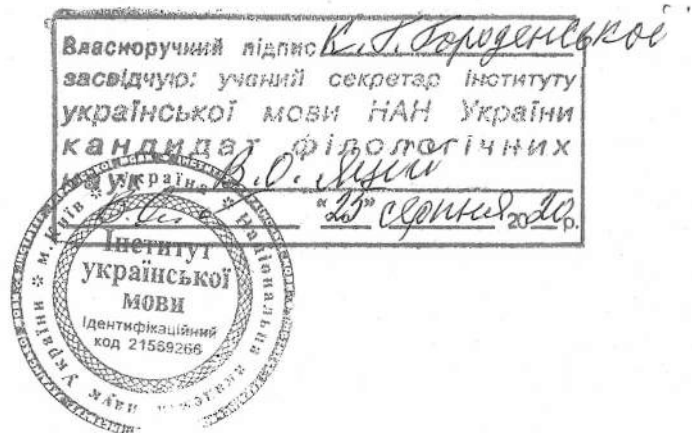 Власноручний підпис К. Г. Городенської
засвідчую: учений секретар Інституту
української мови НАН України
кандидат філологічних
наук В.О.
"25" серпня 2020 р.
Україна * Національна академія наук України * м. Київ *
Інститут
української
мови
Ідентифікаційний
код 21569266